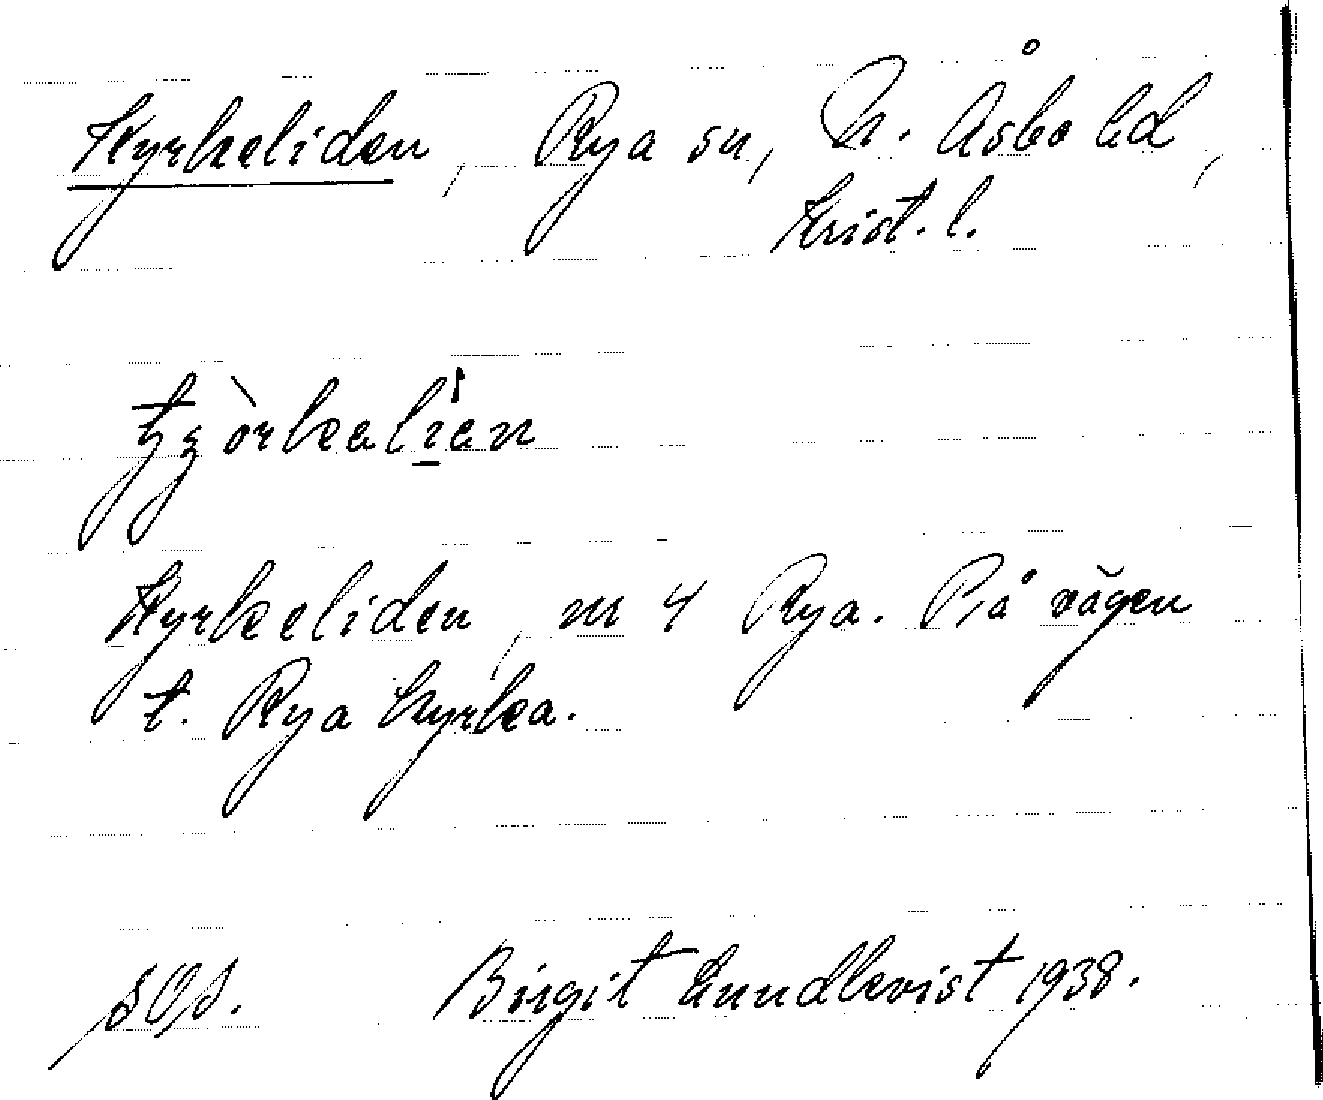 Kyrkeliden, Rya sn, N. Åsbo hd,
Krist. l.
Kyrkeliden, m 4 Rya. På vägen
t. Rya kyrka.
Birgit Lundkvist 1938.